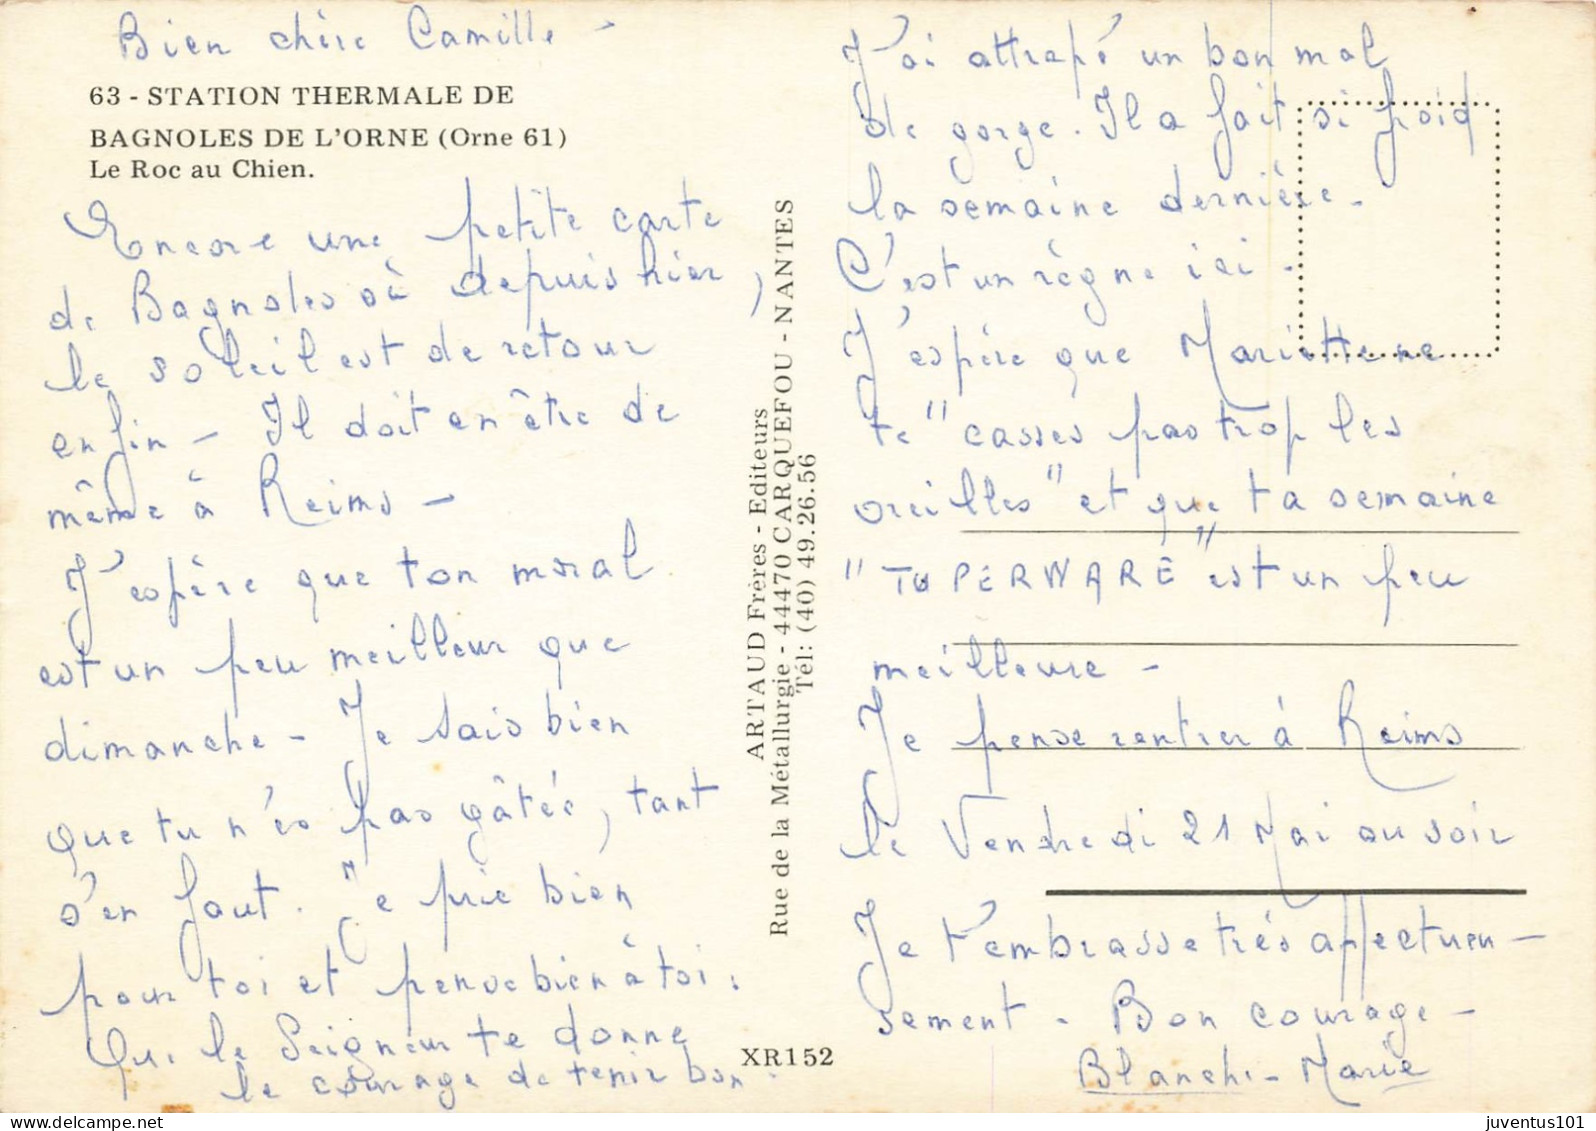 Bien chère Camille -
63 - STATION THERMALE DE
BAGNOLES DE L'ORNE (Orne 61)
Le Roc au Chien.
Encore une petite carte
de Bagnoles où depuis hier,
le soleil est de retour
enfin - Il doit en être de
même à Reims -
J'espère que ton moral
est un peu meilleur que
dimanche - Je sais bien
que tu n'es pas gâtée, tant
s'en faut. Je prie bien
pour toi et pense bien à toi :
Que le Seigneur te donne
le courage de tenir bon.
ARTAUD Frères - Editeurs
Rue de la Métallurgie - 44470 CARQUEFOU - NANTES
Tél: (40) 49.26.56
XR152
J'ai attrapé un bon mal
de gorge. Il a fait si froid
la semaine dernière -
C'est un règne ici -
J'espère que Mariette ne
te "casses pas trop les
oreilles" et que ta semaine
"TUPERWARE" est un peu
meilleure -
Je pense rentrer à Reims
le Vendredi 21 Mai au soir
Je t'embrasse très affectueu-
sement - Bon courage -
Blanche-Marie
juventus101